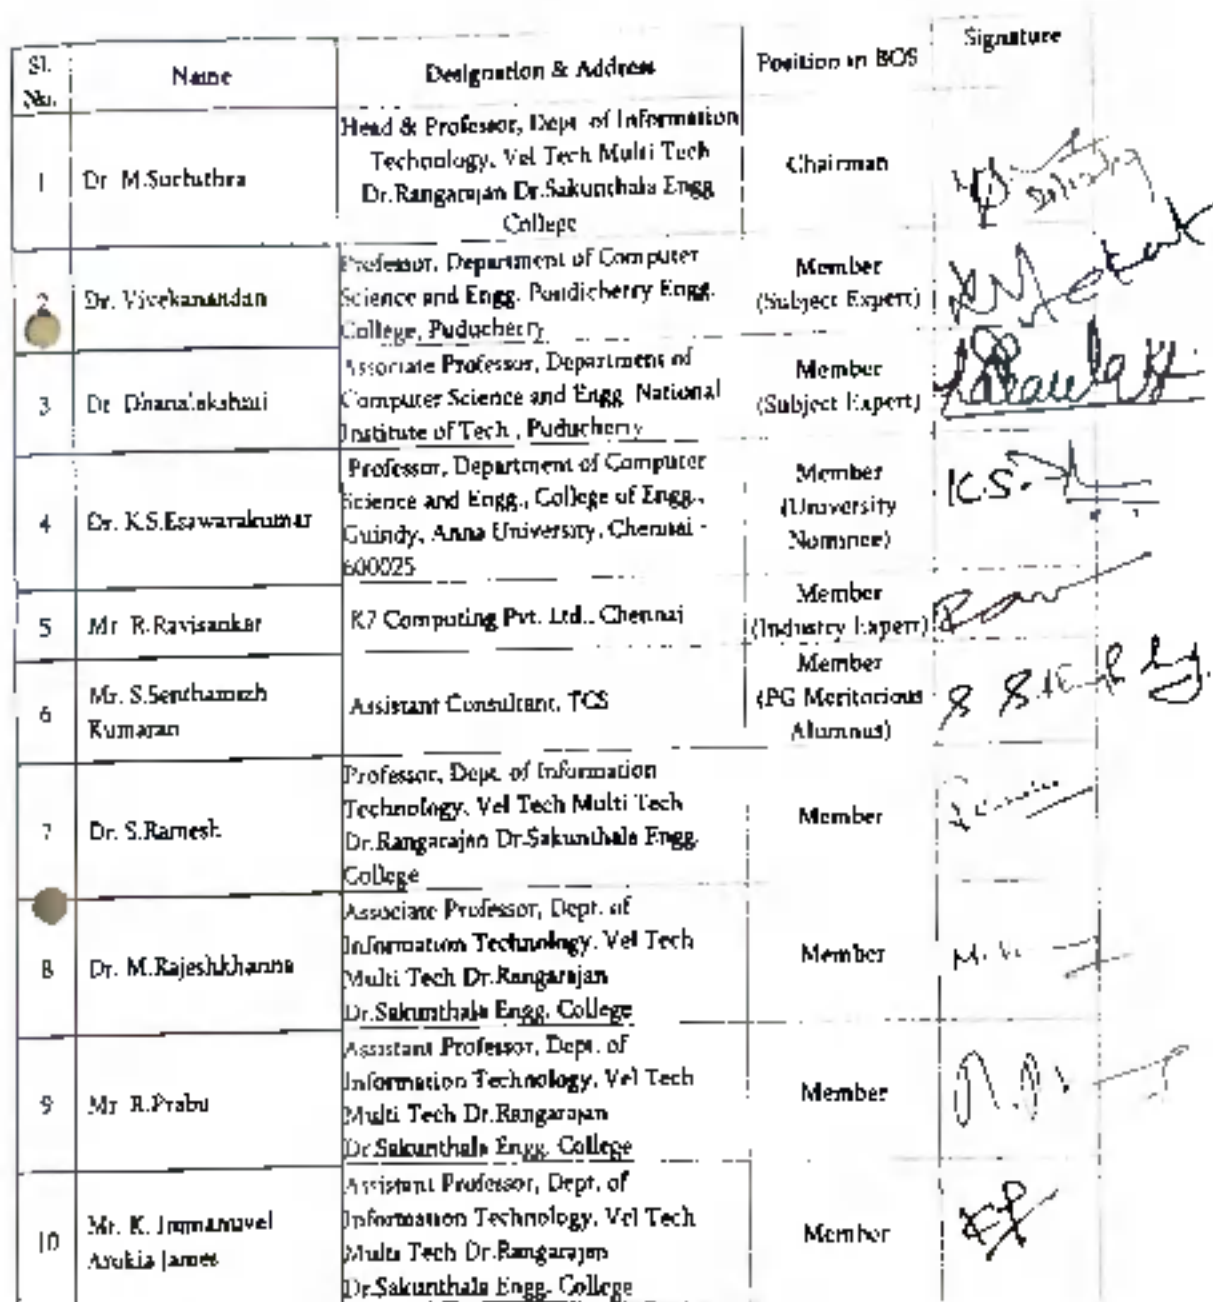 Sl. No.
Name
Designation & Address
Position in BOS
Signature
1
Dr M.Suchithra
Head & Professor, Dept of Information
Technology, Vel Tech Multi Tech
Dr.Rangarajan Dr.Sakunthala Engg
College
Chairman
2
Dr. Vivekanandan
Professor, Department of Computer
Science and Engg. Pondicherry Engg.
College, Puducherry
Member
(Subject Expert)
3
Dr Dhanalakshmi
Associate Professor, Department of
Computer Science and Engg National
Institute of Tech , Puducherry
Member
(Subject Expert)
4
Dr. K.S.Esawarakumar
Professor, Department of Computer
Science and Engg., College of Engg.,
Guindy, Anna University, Chennai -
600025
Member
(University
Nominee)
K.S.
5
Mr R.Ravisankar
K7 Computing Pvt. Ltd., Chennai
Member
(Industry Expert)
6
Mr. S.Senthamizh
Kumaran
Assistant Consultant, TCS
Member
(PG Meritorious
Alumnus)
7
Dr. S.Ramesh
Professor, Dept. of Information
Technology, Vel Tech Multi Tech
Dr.Rangarajan Dr.Sakunthala Engg.
College
Member
8
Dr. M.Rajeshkhanna
Associate Professor, Dept. of
Information Technology, Vel Tech
Multi Tech Dr.Rangarajan
Dr.Sakunthala Engg. College
Member
9
Mr R.Prabu
Assistant Professor, Dept. of
Information Technology, Vel Tech
Multi Tech Dr.Rangarajan
Dr.Sakunthala Engg. College
Member
10
Mr. K. Immanuvel
Arokia James
Assistant Professor, Dept. of
Information Technology, Vel Tech
Multi Tech Dr.Rangarajan
Dr.Sakunthala Engg. College
Member